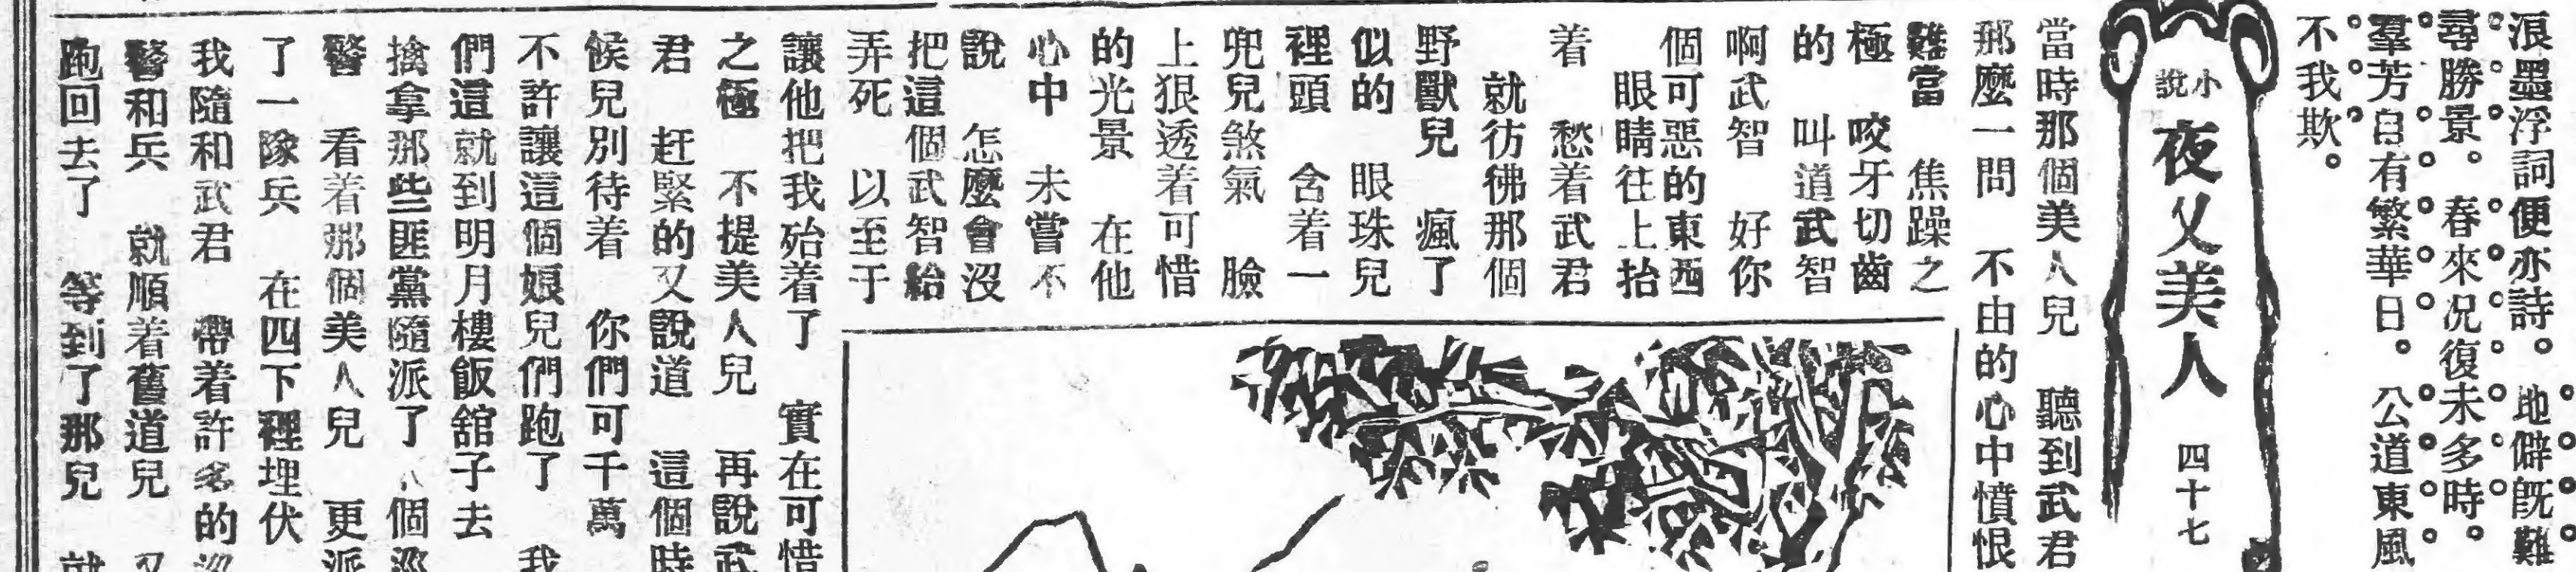 浪墨浮詞便亦詩。地僻旣難
尋勝景。春來况復未多時。
羣芳自有繁華日。公道東風
不我欺。
小說
夜叉美人
四十七
當時那個美人兒 聽到武君
那麼一問 不由的心中憤恨
難當 焦躁之
極 咬牙切齒
的 叫道武智
啊武智 好你
個可惡的東西
眼睛往上抬
着 愁着武君
就彷彿那個
野獸兒 瘋了
似的 眼珠兒
裡頭 含着一
兜兒煞氣 臉
上狠透着可惜
的光景 在他
心中 未嘗不
說 怎麼會沒
把這個武智給
弄死 以至于
讓他把我殆着了 實在可惜
之極 不提美人兒 再說武
君 赶緊的又說道 這個時
候兒別待着 你們可千萬
不許讓這個娘兒們跑了 我
們這就到明月樓飯舘子去
擒拿那些匪黨隨派了八個巡
警 看着那個美人兒 更派
了一隊兵 在四下裡埋伏
我隨和武君 帶着許多的巡
警和兵 就順着舊道兒 又
跑回去了 等到了那兒 就